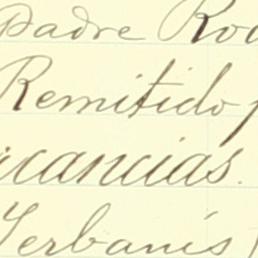 Padre Ro
Remitido p
cancias.
Yerbanis (